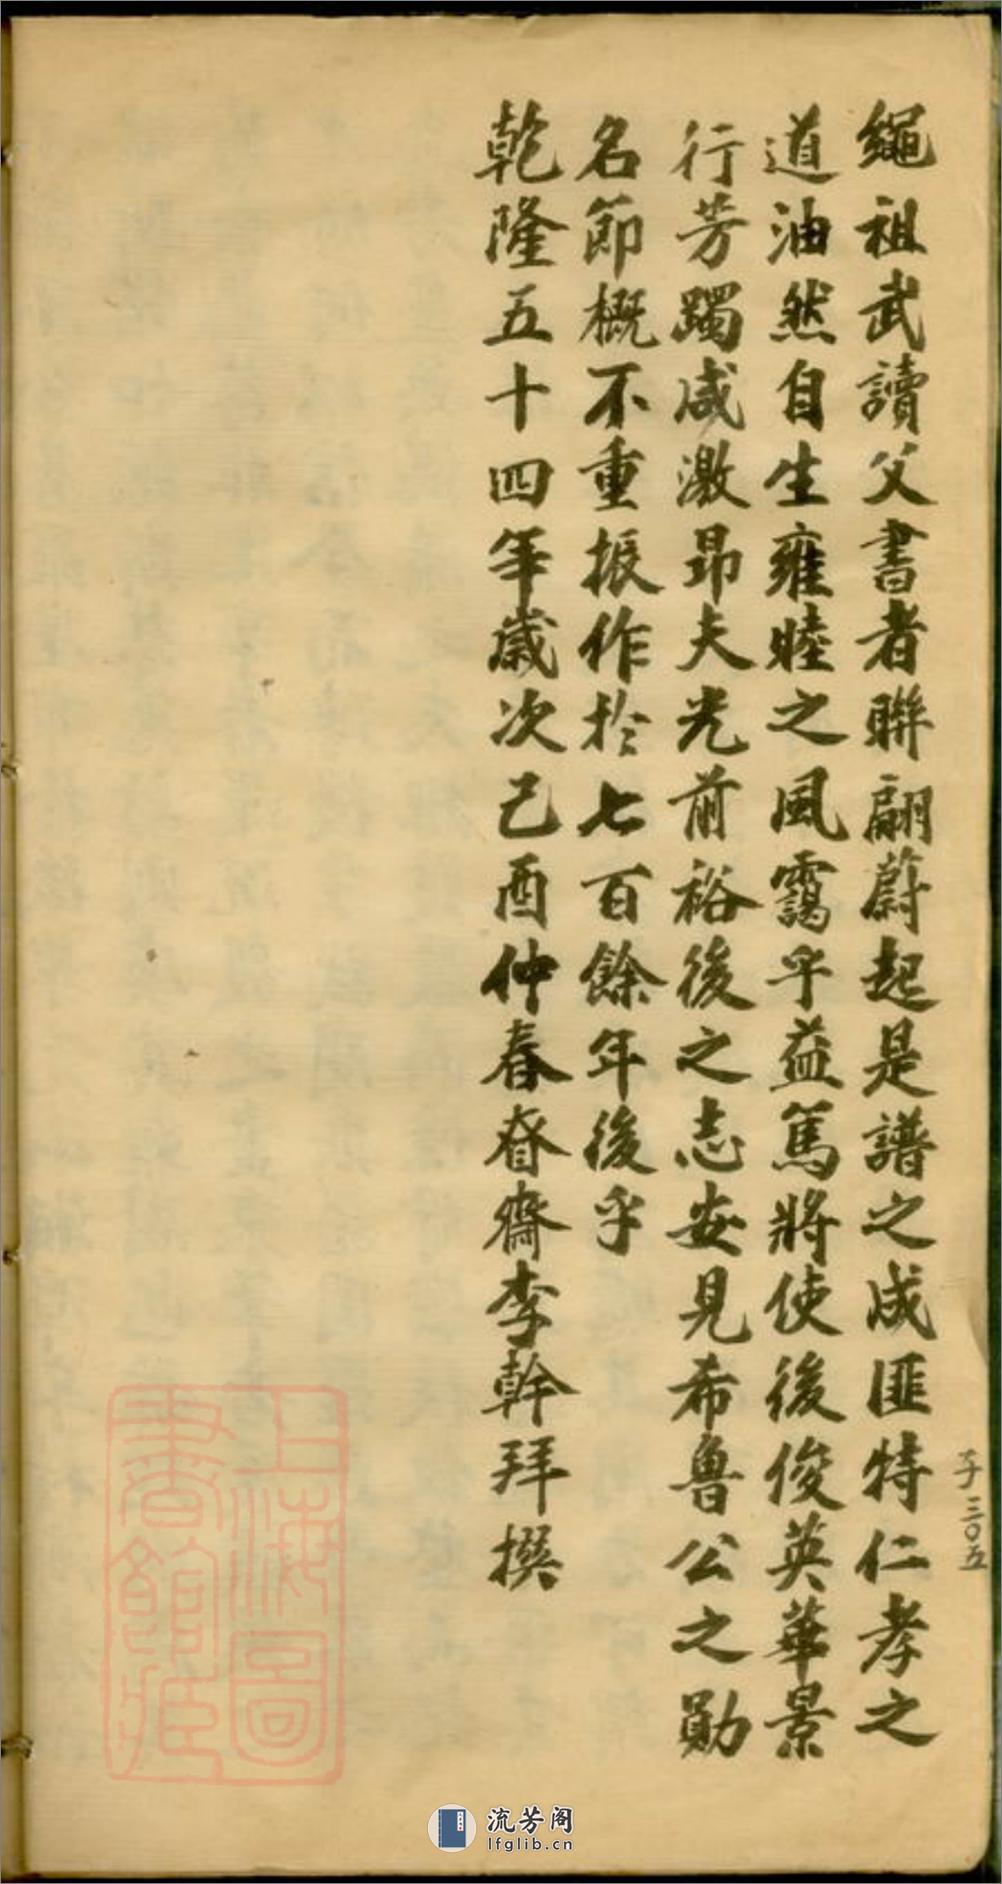 繩祖武讀父書者聯翩蔚起是譜之成匪特仁孝之
道油然自生雍睦之風靄乎益篤將使後俊英華景
行芳躅咸激昂夫光前裕後之志安見希魯公之勛
名節概不重振作於七百餘年後乎
乾隆五十四年歲次己酉仲春春齋李幹拜撰
子三〇五
上海圖
書館藏
流芳阁
lfglib.cn